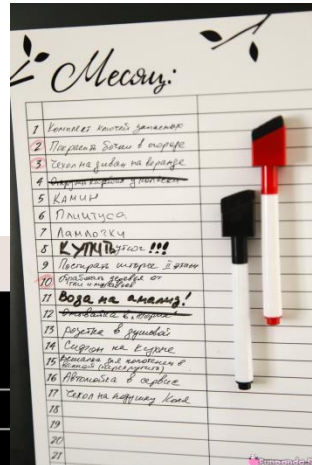 Месяц:
1 Комплект ключей запасной
2 Покрасить бочки в огороде
3 Чехол на диван на веранде
4
5 Камин
6 Плинтуса
7 Лампочку
8 Купить утюг!!!
9 Постирать шторы II этаж
10 Обработать деревья от тли и
11 Вода на анализ!
12
13 розетка в душевой
14 Сифон на кухне
15 Вешалка для полотенец в ванной (перекрутить)
16 Автомойка в сервис
17 Чехол на подушку Коля
18
19
20
21